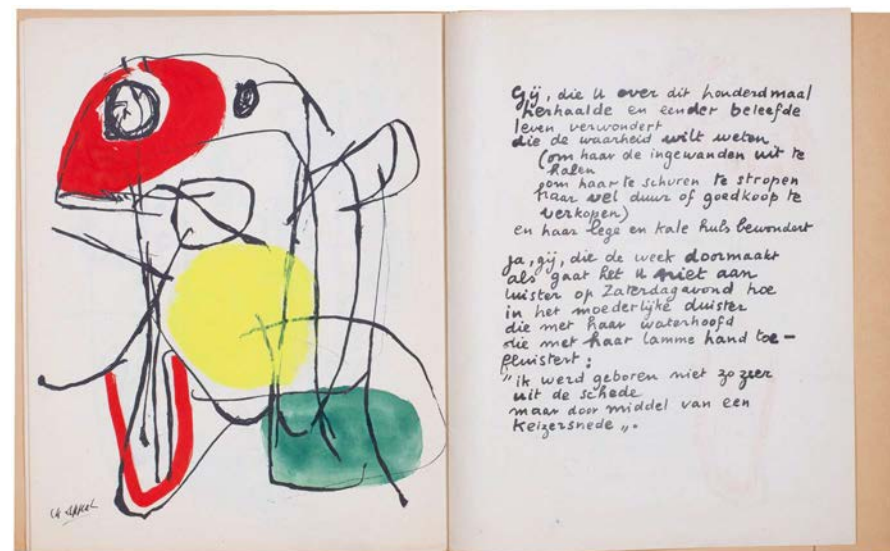 ck. APPEL
Gij, die U over dit honderdmaal
herhaalde en eender beleefde
leven verwondert
die de waarheid wilt weten
(om haar de ingewanden uit te
halen
om haar te schuren te stropen
haar vel duur of goedkoop te
verkopen)
en haar lege en kale huls bewondert
Ja, gij, die de week doormaakt
als gaat het U niet aan
luister op Zaterdagavond hoe
in het moederlijke duister
die met haar waterhoofd
die met haar lamme hand toe-
fluistert:
"ik werd geboren niet zo zeer
uit de schede
maar door middel van een
keizersnede„.